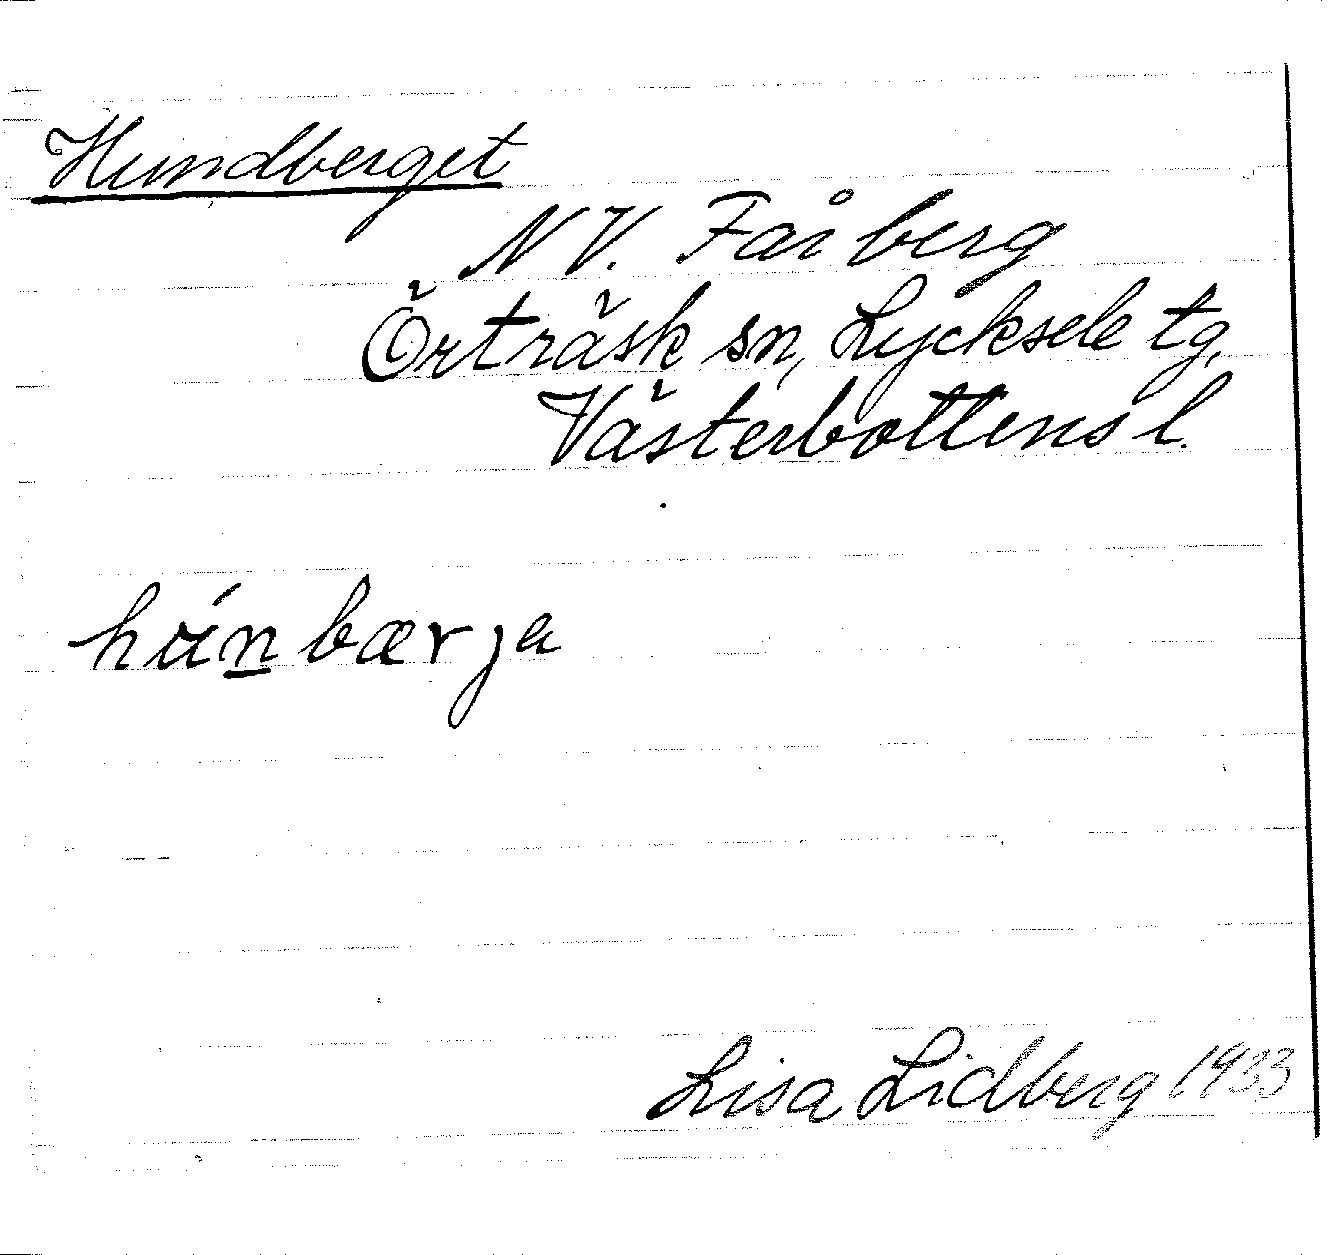 Hundberget
N V. Fårberg
Örträsk sn, Lycksele tg,
Västerbottens l.
húnbærja
Lisa Lidberg 1933